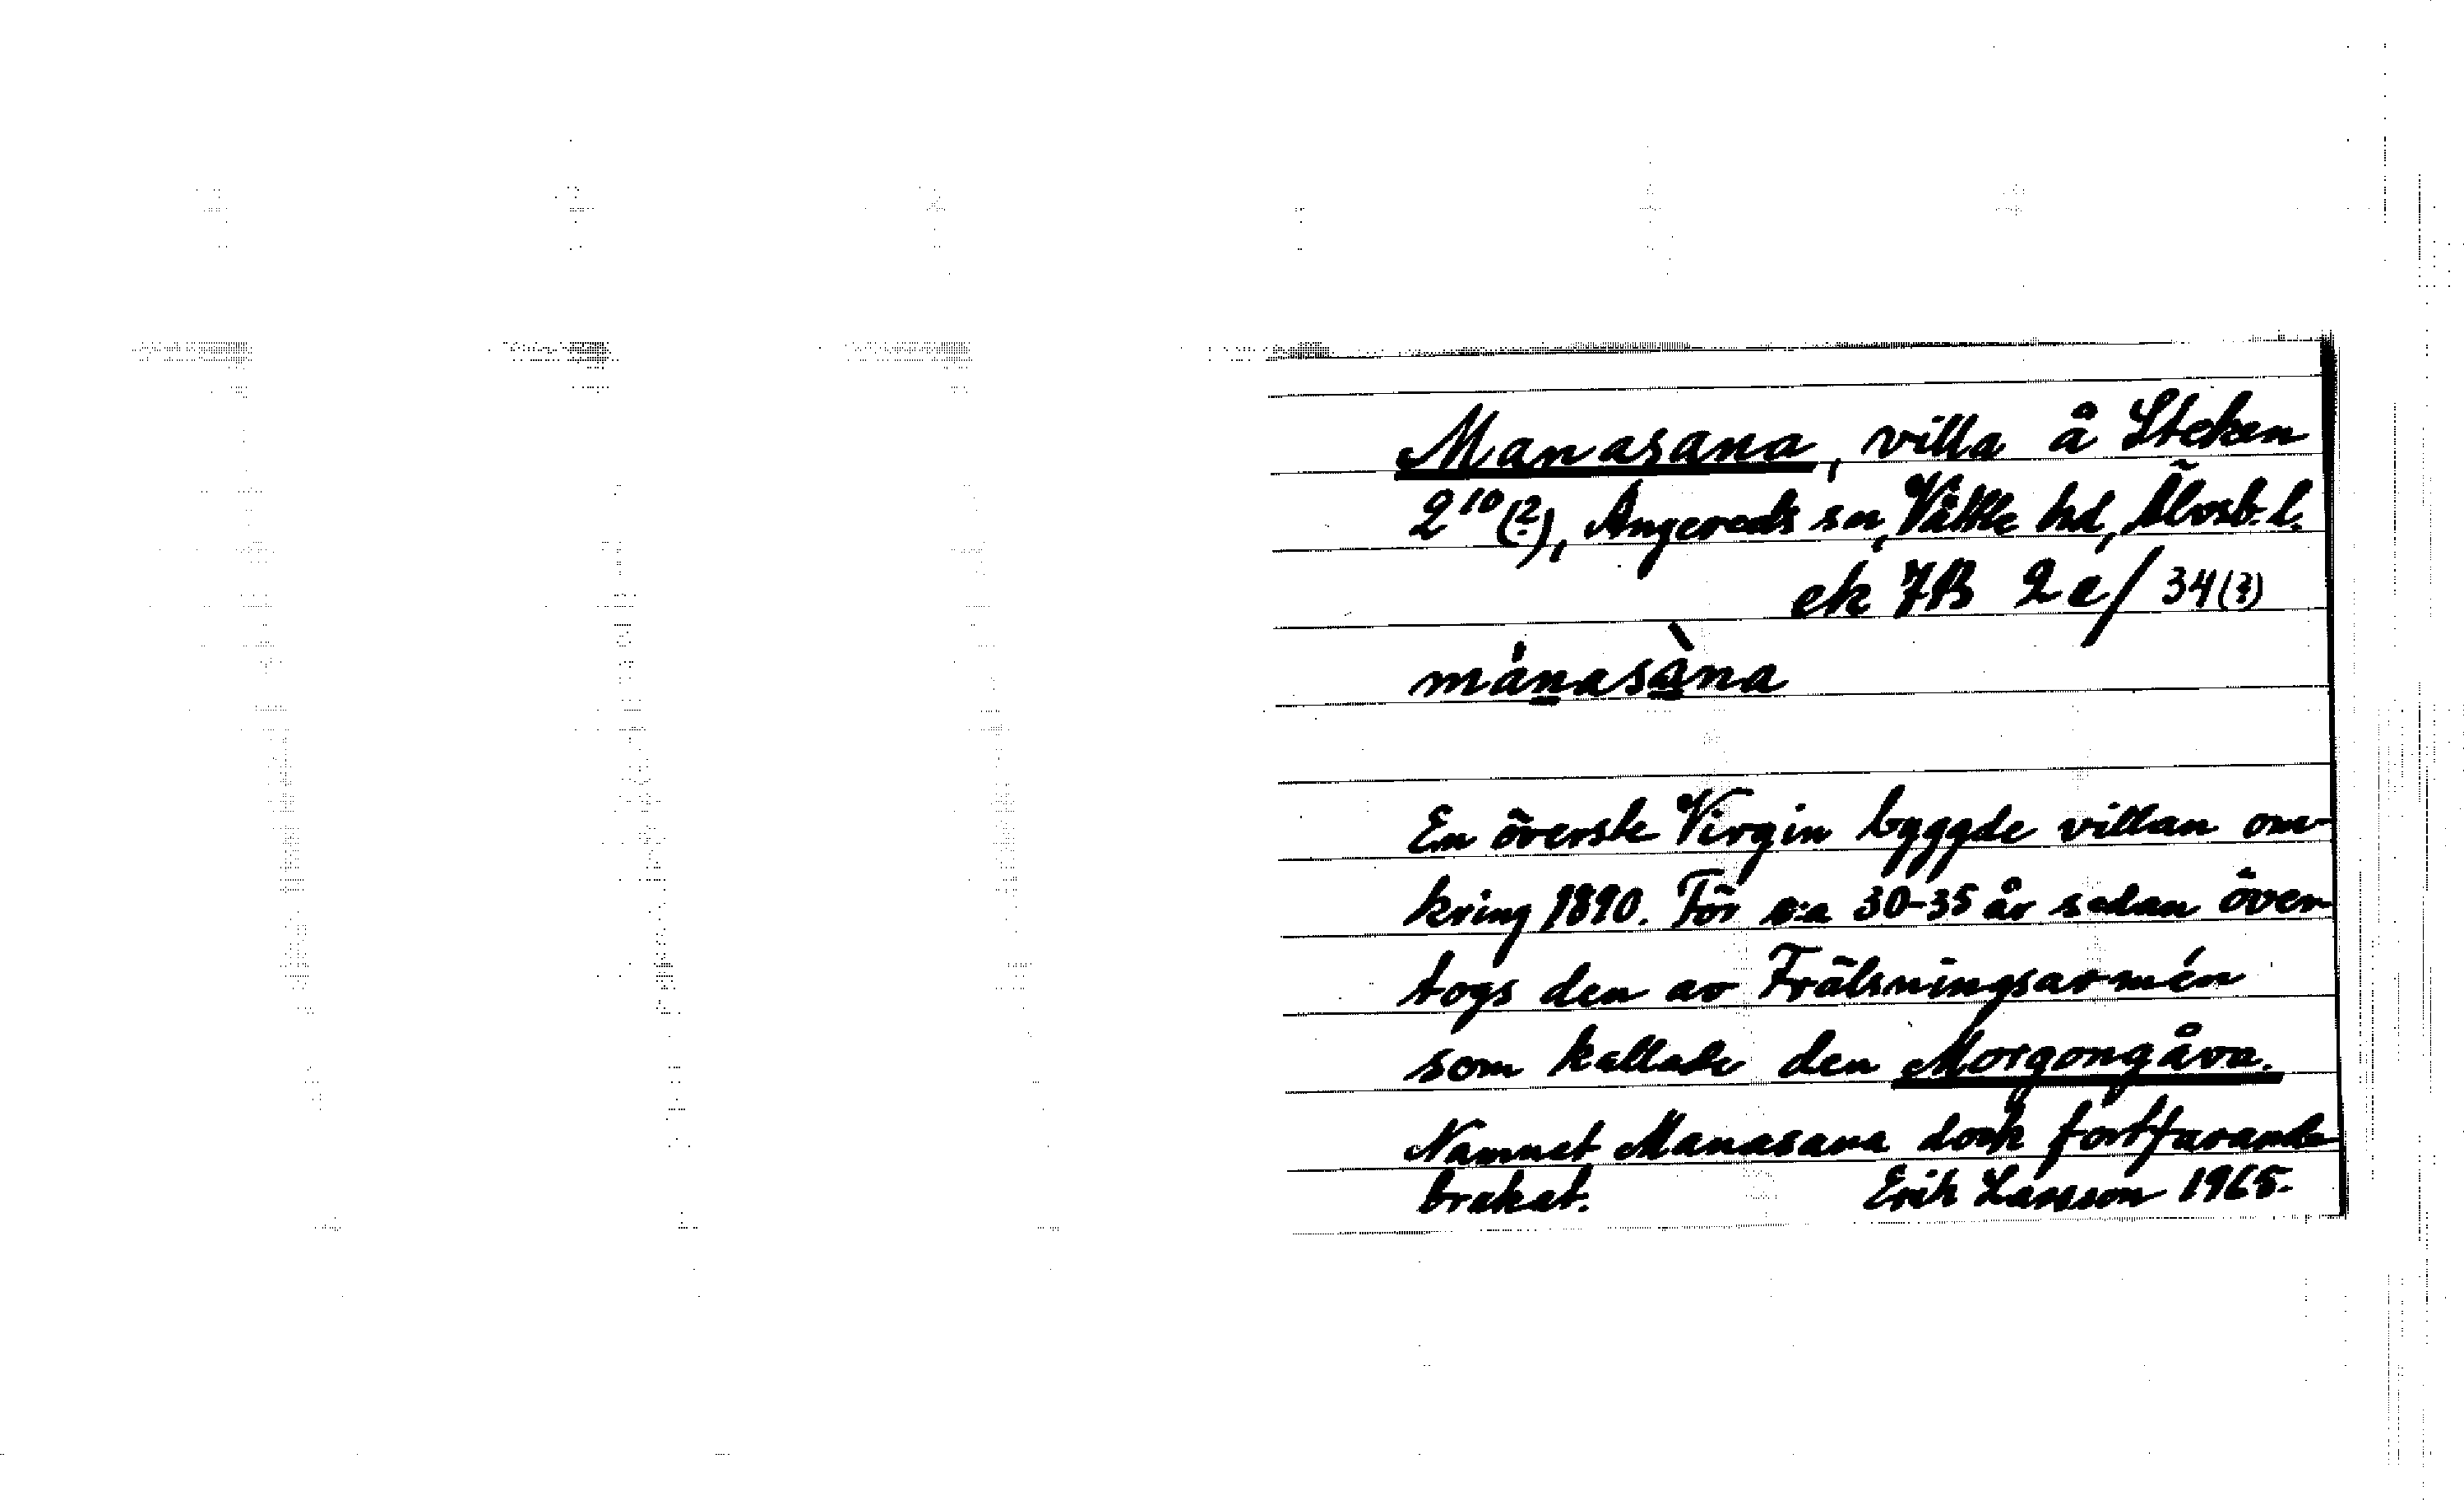 Manasana, villa å Steken
2¹⁰(?), Angereds sn, Vättle hd, Älvsb. l.
ek 7B 2e/34(?)
mánasàna
En överste Virgin byggde villan om-
kring 1890. För c:a 30-35 år sedan över-
togs den av Frälsningsarmén
som kallade den Morgongåva.
Namnet Manasana dock fortfarande
brukat. Erik Larsson 1965.